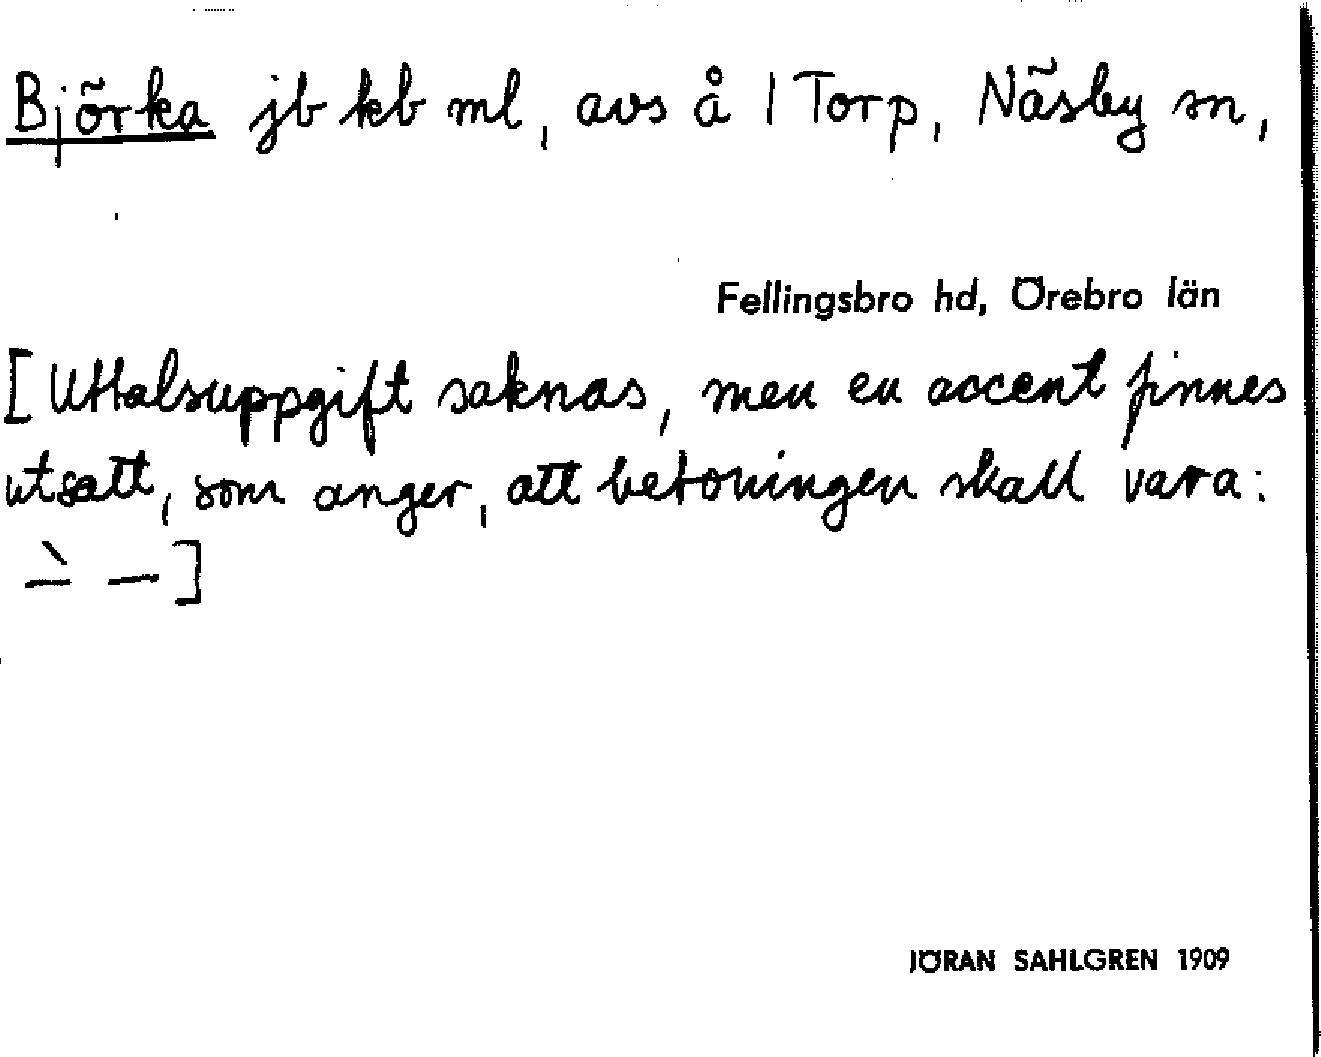 Björka jb kb ml, avs å 1 Torp, Näsby sn,
Fellingsbro hd, Örebro län
[Uttalsuppgift saknas, men en accent finnes
utsatt, som anger, att betoningen skall vara:
–̀ –]
JÖRAN SAHLGREN 1909